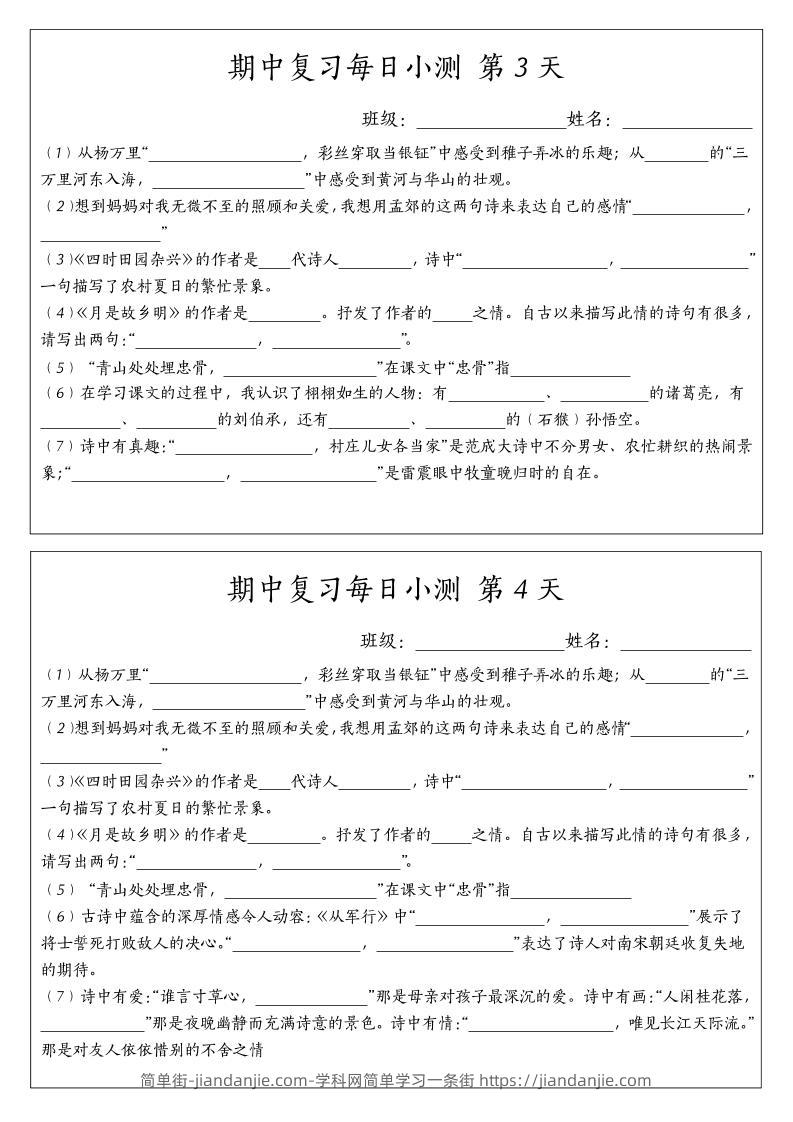 期中复习每日小测 第 3 天
班级：______________姓名：____________
（1）从杨万里“______________，彩丝穿取当银钲”中感受到稚子弄冰的乐趣；从______的“三
万里河东入海，______________”中感受到黄河与华山的壮观。
（2）想到妈妈对我无微不至的照顾和关爱，我想用孟郊的这两句诗来表达自己的感情“__________，
___________”
（3）《四时田园杂兴》的作者是___代诗人_______，诗中“_____________，____________”
一句描写了农村夏日的繁忙景象。
（4）《月是故乡明》的作者是_______。抒发了作者的____之情。自古以来描写此情的诗句有很多，
请写出两句：“___________，____________”。
（5）“青山处处埋忠骨，______________”在课文中“忠骨”指___________
（6）在学习课文的过程中，我认识了栩栩如生的人物：有_________、________的诸葛亮，有
_______、_______的刘伯承，还有_______、_______的（石猴）孙悟空。
（7）诗中有真趣：“_____________，村庄儿女各当家”是范成大诗中不分男女、农忙耕织的热闹景
象；“______________，_____________”是雷震眼中牧童晚归时的自在。
期中复习每日小测 第 4 天
班级：______________姓名：____________
（1）从杨万里“______________，彩丝穿取当银钲”中感受到稚子弄冰的乐趣；从______的“三
万里河东入海，______________”中感受到黄河与华山的壮观。
（2）想到妈妈对我无微不至的照顾和关爱，我想用孟郊的这两句诗来表达自己的感情“__________，
___________”
（3）《四时田园杂兴》的作者是___代诗人_______，诗中“_____________，____________”
一句描写了农村夏日的繁忙景象。
（4）《月是故乡明》的作者是_______。抒发了作者的____之情。自古以来描写此情的诗句有很多，
请写出两句：“___________，____________”。
（5）“青山处处埋忠骨，______________”在课文中“忠骨”指___________
（6）古诗中蕴含的深厚情感令人动容：《从军行》中“____________，____________”展示了
将士誓死打败敌人的决心。“____________，_____________”表达了诗人对南宋朝廷收复失地
的期待。
（7）诗中有爱：“谁言寸草心，__________”那是母亲对孩子最深沉的爱。诗中有画：“人闲桂花落，
__________”那是夜晚幽静而充满诗意的景色。诗中有情：“_____________，唯见长江天际流。”
那是对友人依依惜别的不舍之情
简单街-jiandanjie.com-学科网简单学习一条街 https://jiandanjie.com